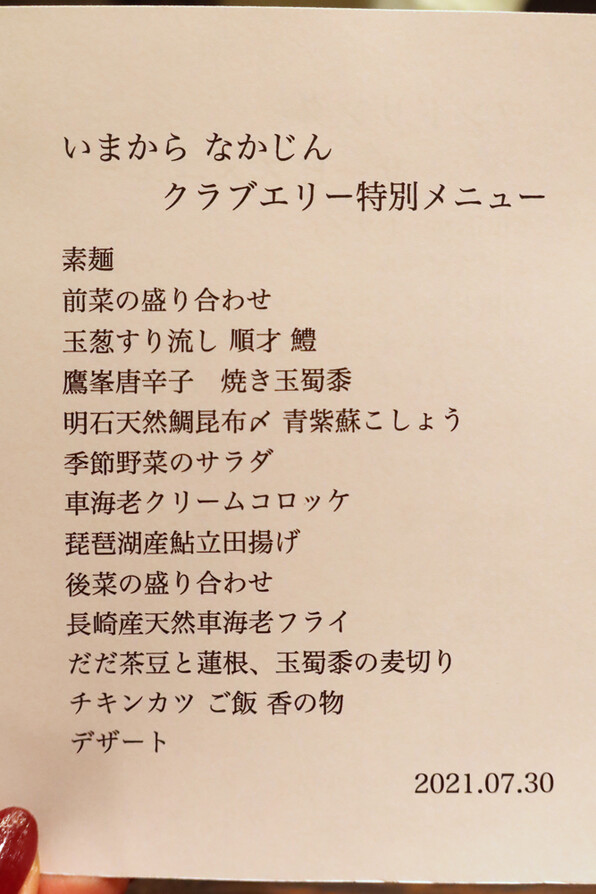 いまから なかじん
クラブエリー特別メニュー
素麺
前菜の盛り合わせ
玉葱すり流し 順才 鱧
鷹峯唐辛子　焼き玉蜀黍
明石天然鯛昆布〆 青紫蘇こしょう
季節野菜のサラダ
車海老クリームコロッケ
琵琶湖産鮎立田揚げ
後菜の盛り合わせ
長崎産天然車海老フライ
だだ茶豆と蓮根、玉蜀黍の麦切り
チキンカツ ご飯 香の物
デザート
2021.07.30